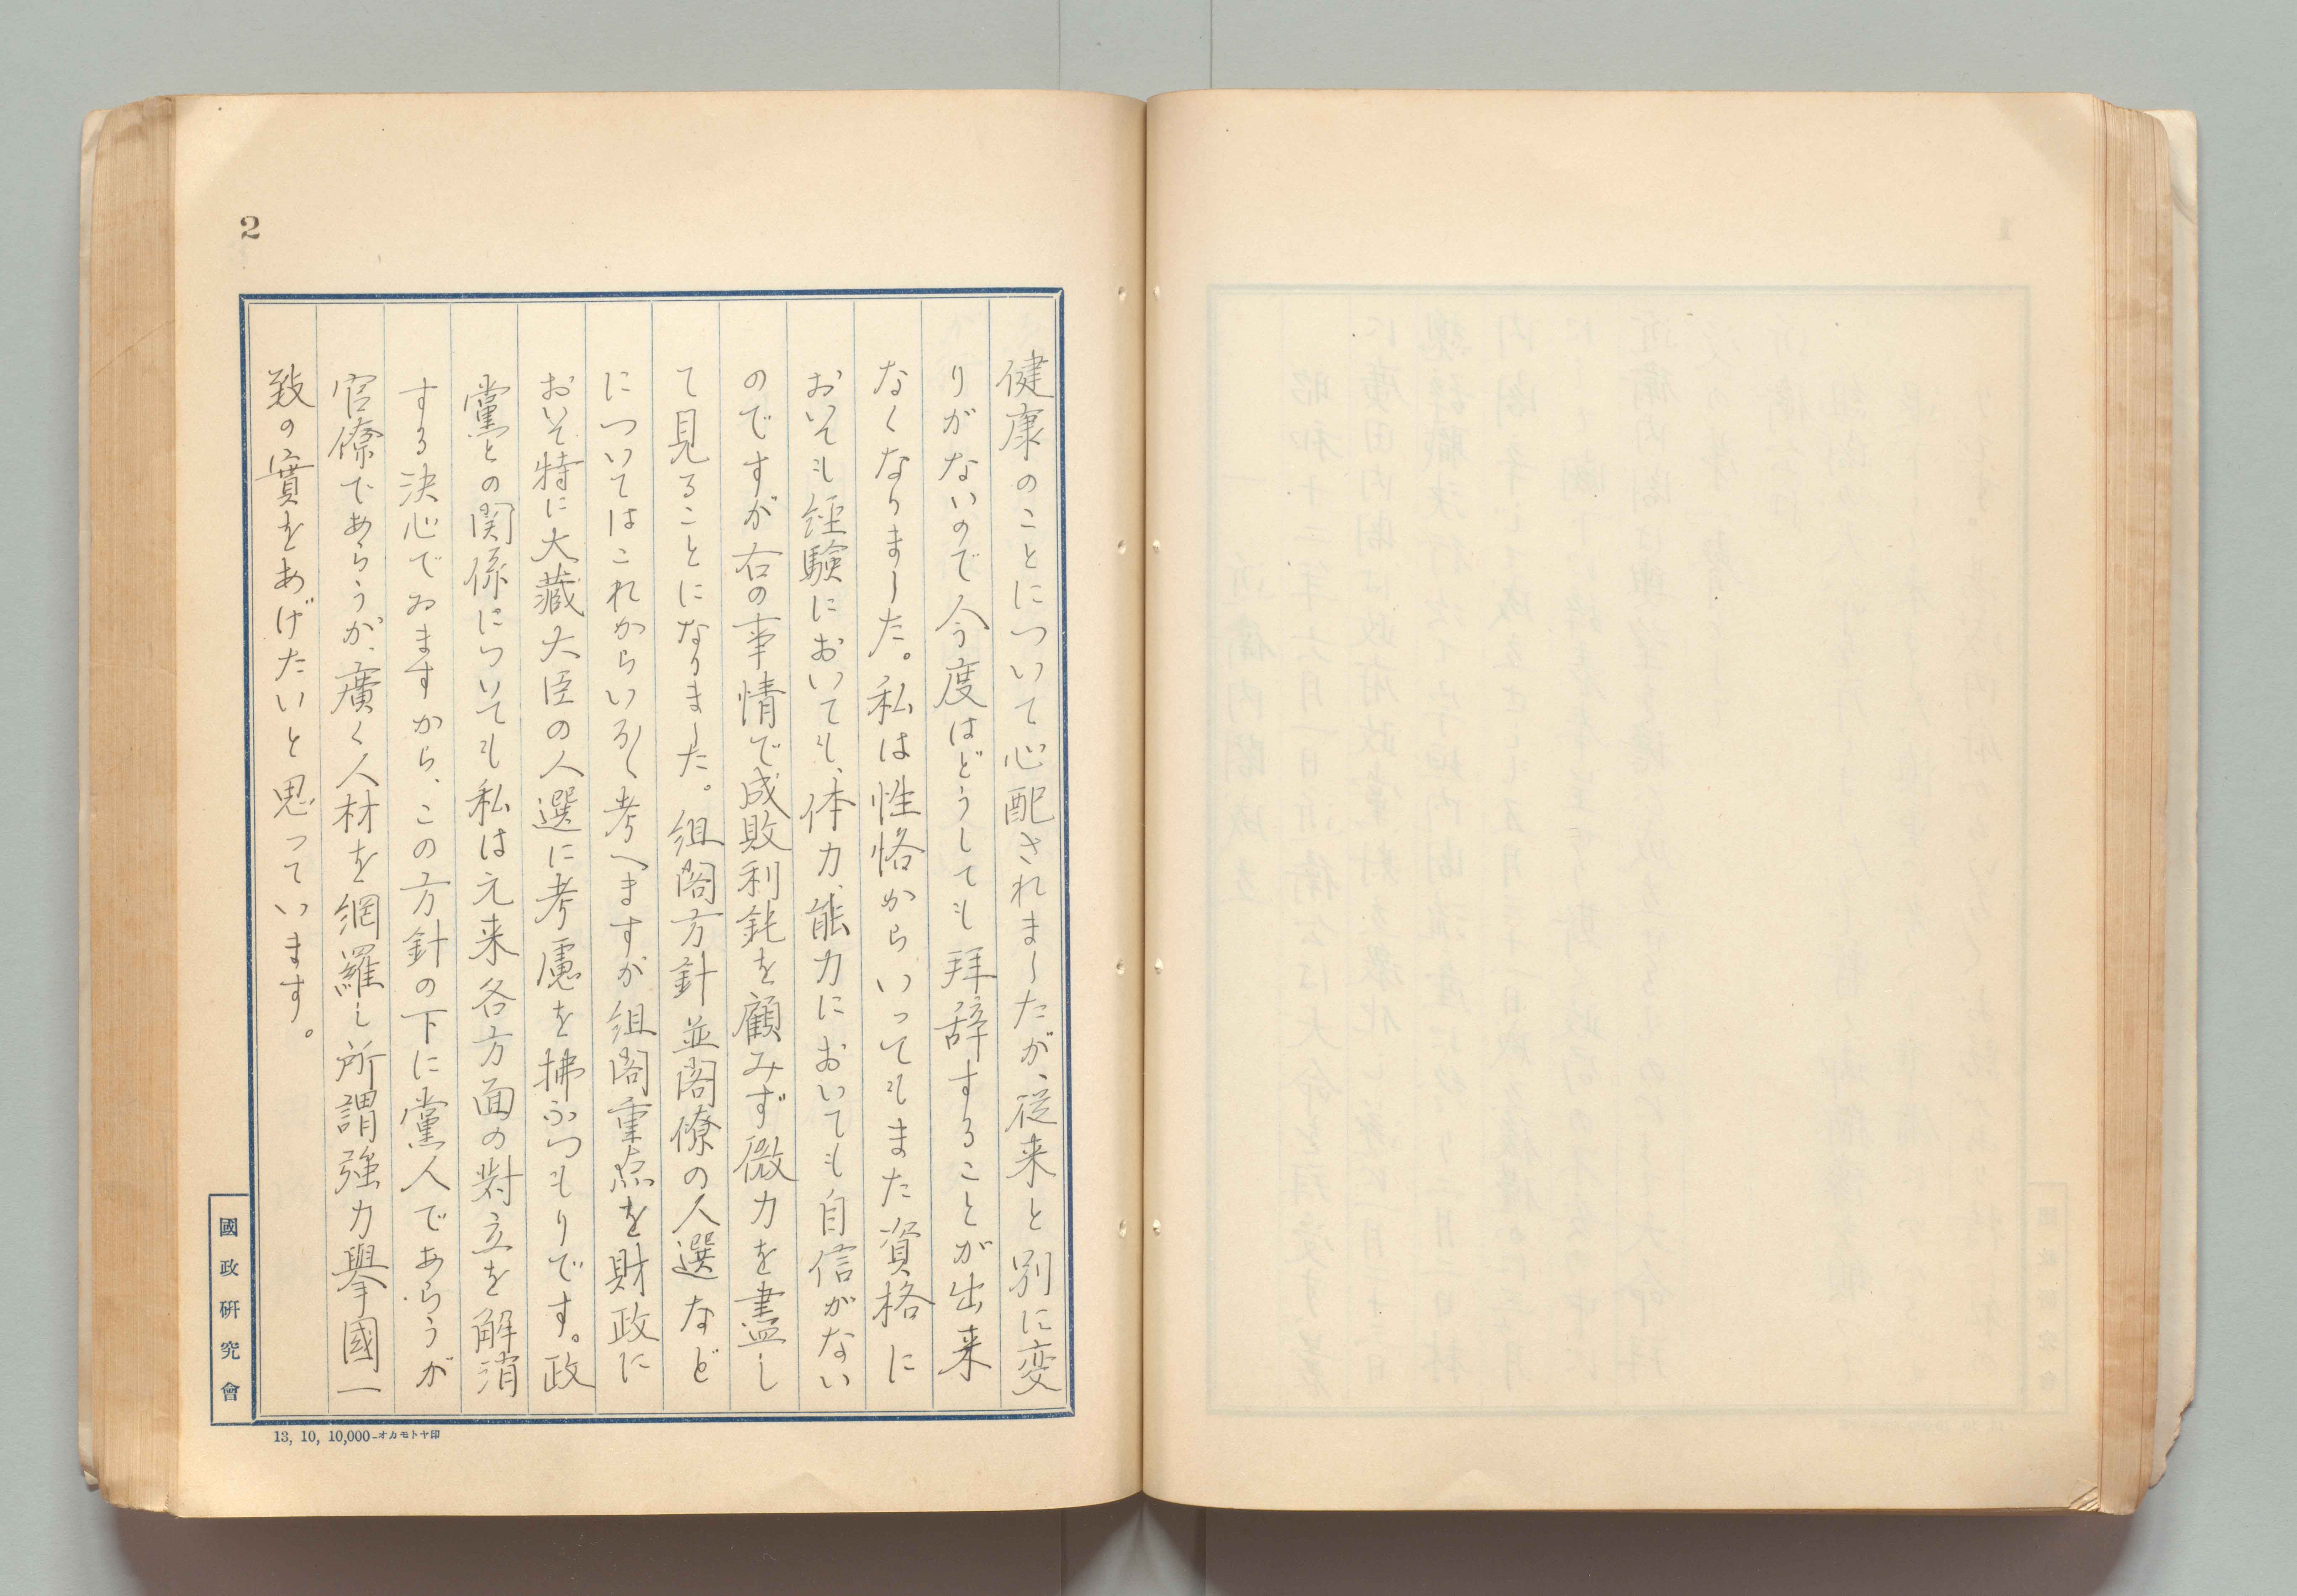 2
健康のことについて心配されましたが、従来と別に変
りがないので今度はどうしても拝辞することが出来
なくなりました。私は性格からいってもまた資格に
おいても経験においても、体力、能力においても自信がない
のですが右の事情で成敗利鈍を顧みず微力を盡し
て見ることになりました。組閣方針並閣僚の人選など
についてはこれからいろ〱考へますが組閣重点を財政に
おいて特に大藏大臣の人選に考慮を拂ふつもりです。政
黨との関係についても私は元来各方面の対立を解消
する決心でゐますから、この方針の下に黨人であらうが
官僚であらうが、廣く人材を網羅し所謂強力擧國一
致の實をあげたいと思っています。
國政硏究會
13, 10, 10,000-オカモトヤ印